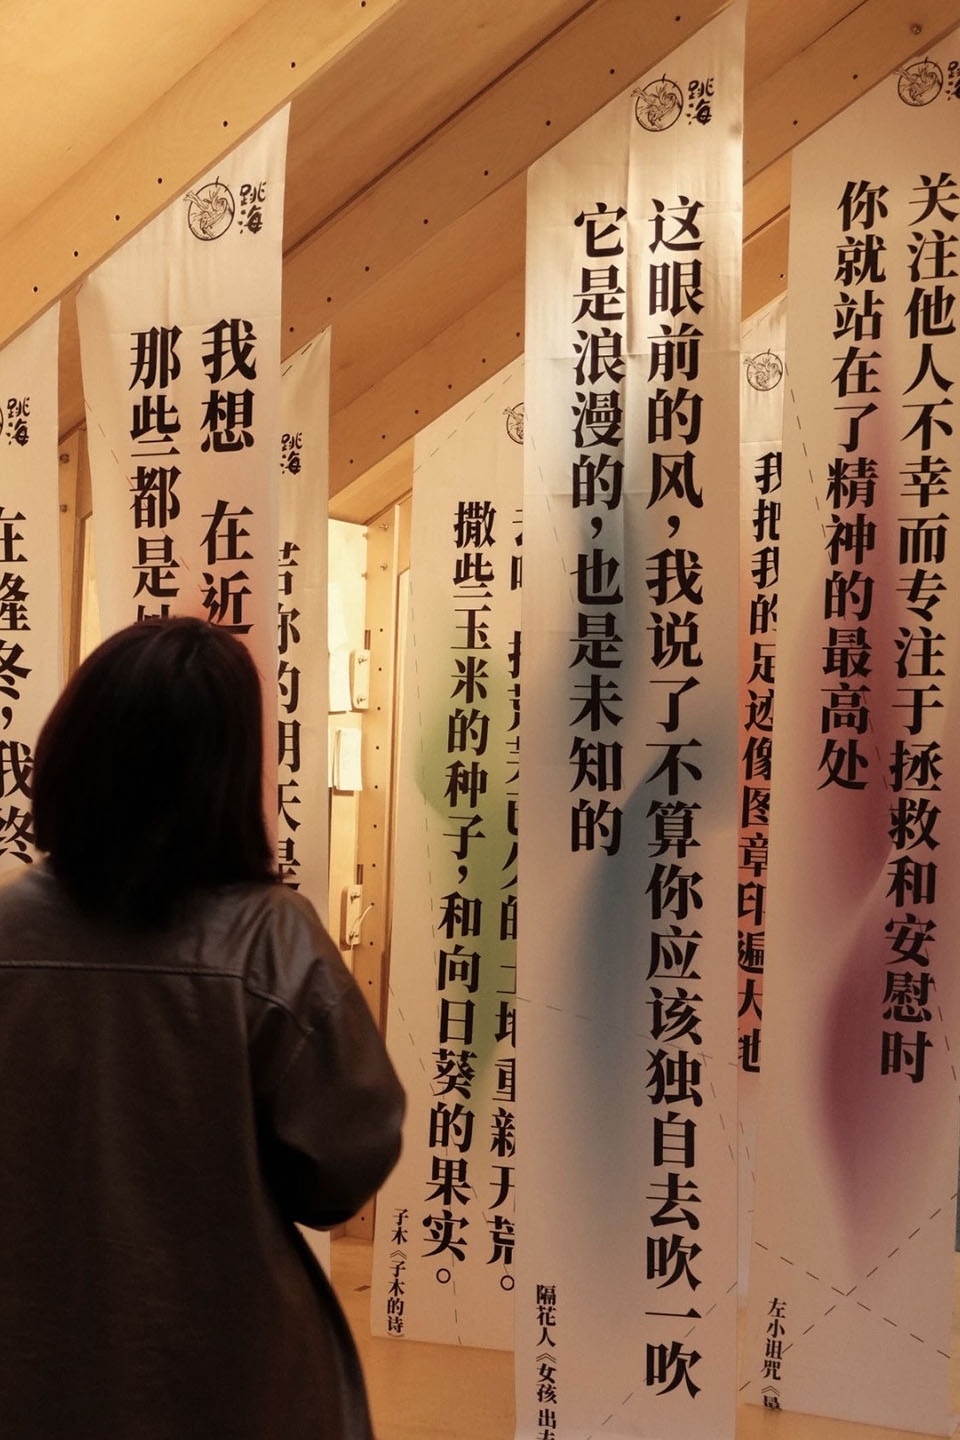 跳海
在隆冬，我终
跳海
我想 在近
那些都是
跳海
你的明天是
重新开荒。
撒些玉米的种子，和向日葵的果实。
子木《子木的诗》
跳海
这眼前的风，我说了不算你应该独自去吹一吹
它是浪漫的，也是未知的
隔花人《女孩 出去
我把我的足迹像图章印遍大地
跳海
关注他人不幸而专注于拯救和安慰时
你就站在了精神的最高处
左小诅咒《